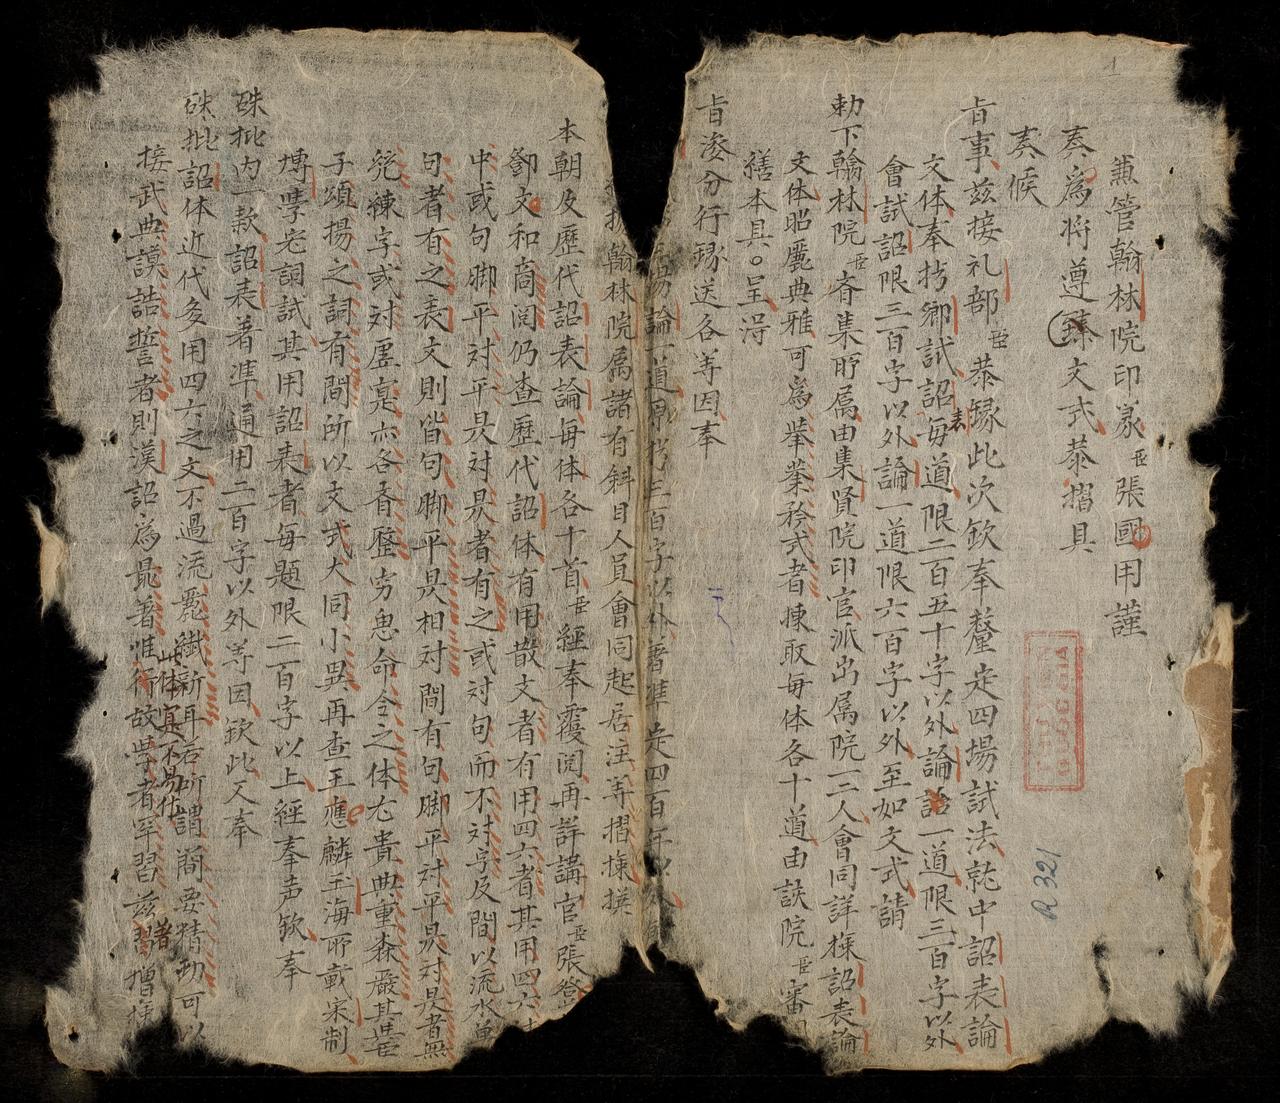 兼管翰林院印篆臣張國用謹
奏為將遵文式恭摺具
奏候
旨事茲接礼部臣恭據此次欽奉釐定四場試法就中詔表論
文体奉拟鄉試詔表每道限二百五十字以外論一道限三百字以外
會試詔限三百字以外論一道限六百字以外至如文式請
勅下翰林院臣斉集所属由集賢院印官派出属院一二人會同詳採詔表論
文体昭麗典雅可為举業矜式者揀取每体各十道由該院臣審
繕本具呈淂
旨後分行琢送各等因奉
論一道原擬三百字以外著準定四百字以
翰林院属諸有斜目人員會同起居注等摺採撰
本朝及歷代詔表論每体各十首臣經奉覆閱再詳講官臣張登
鄧文和商閱仍查歷代詔体有用散文者有用四六者其用四六
中或句脚平対平昃対昃者有之或対句而不対字及間以流水
句者有之表文則皆句脚平昃相対間有句脚平対平昃対昃者無
兊練字或対虛寔亦各斉整穷思命令之体尤貴典重森嚴其
子頌揚之詞有間所以文式大同小異再查王應麟玉海所載宋制
博學宏詞試其用詔表者每題限二百字以上經奉声欽奉
硃批内一款詔表著準通用二百字以外等因欽此又奉
硃批詔体近代多用四六之文不過流麗纖新耳若所謂簡要精切可以
接武典謨誥誓者則漢詔為最著惟行故學者罕習茲習增
此体真不易作
者
R 321